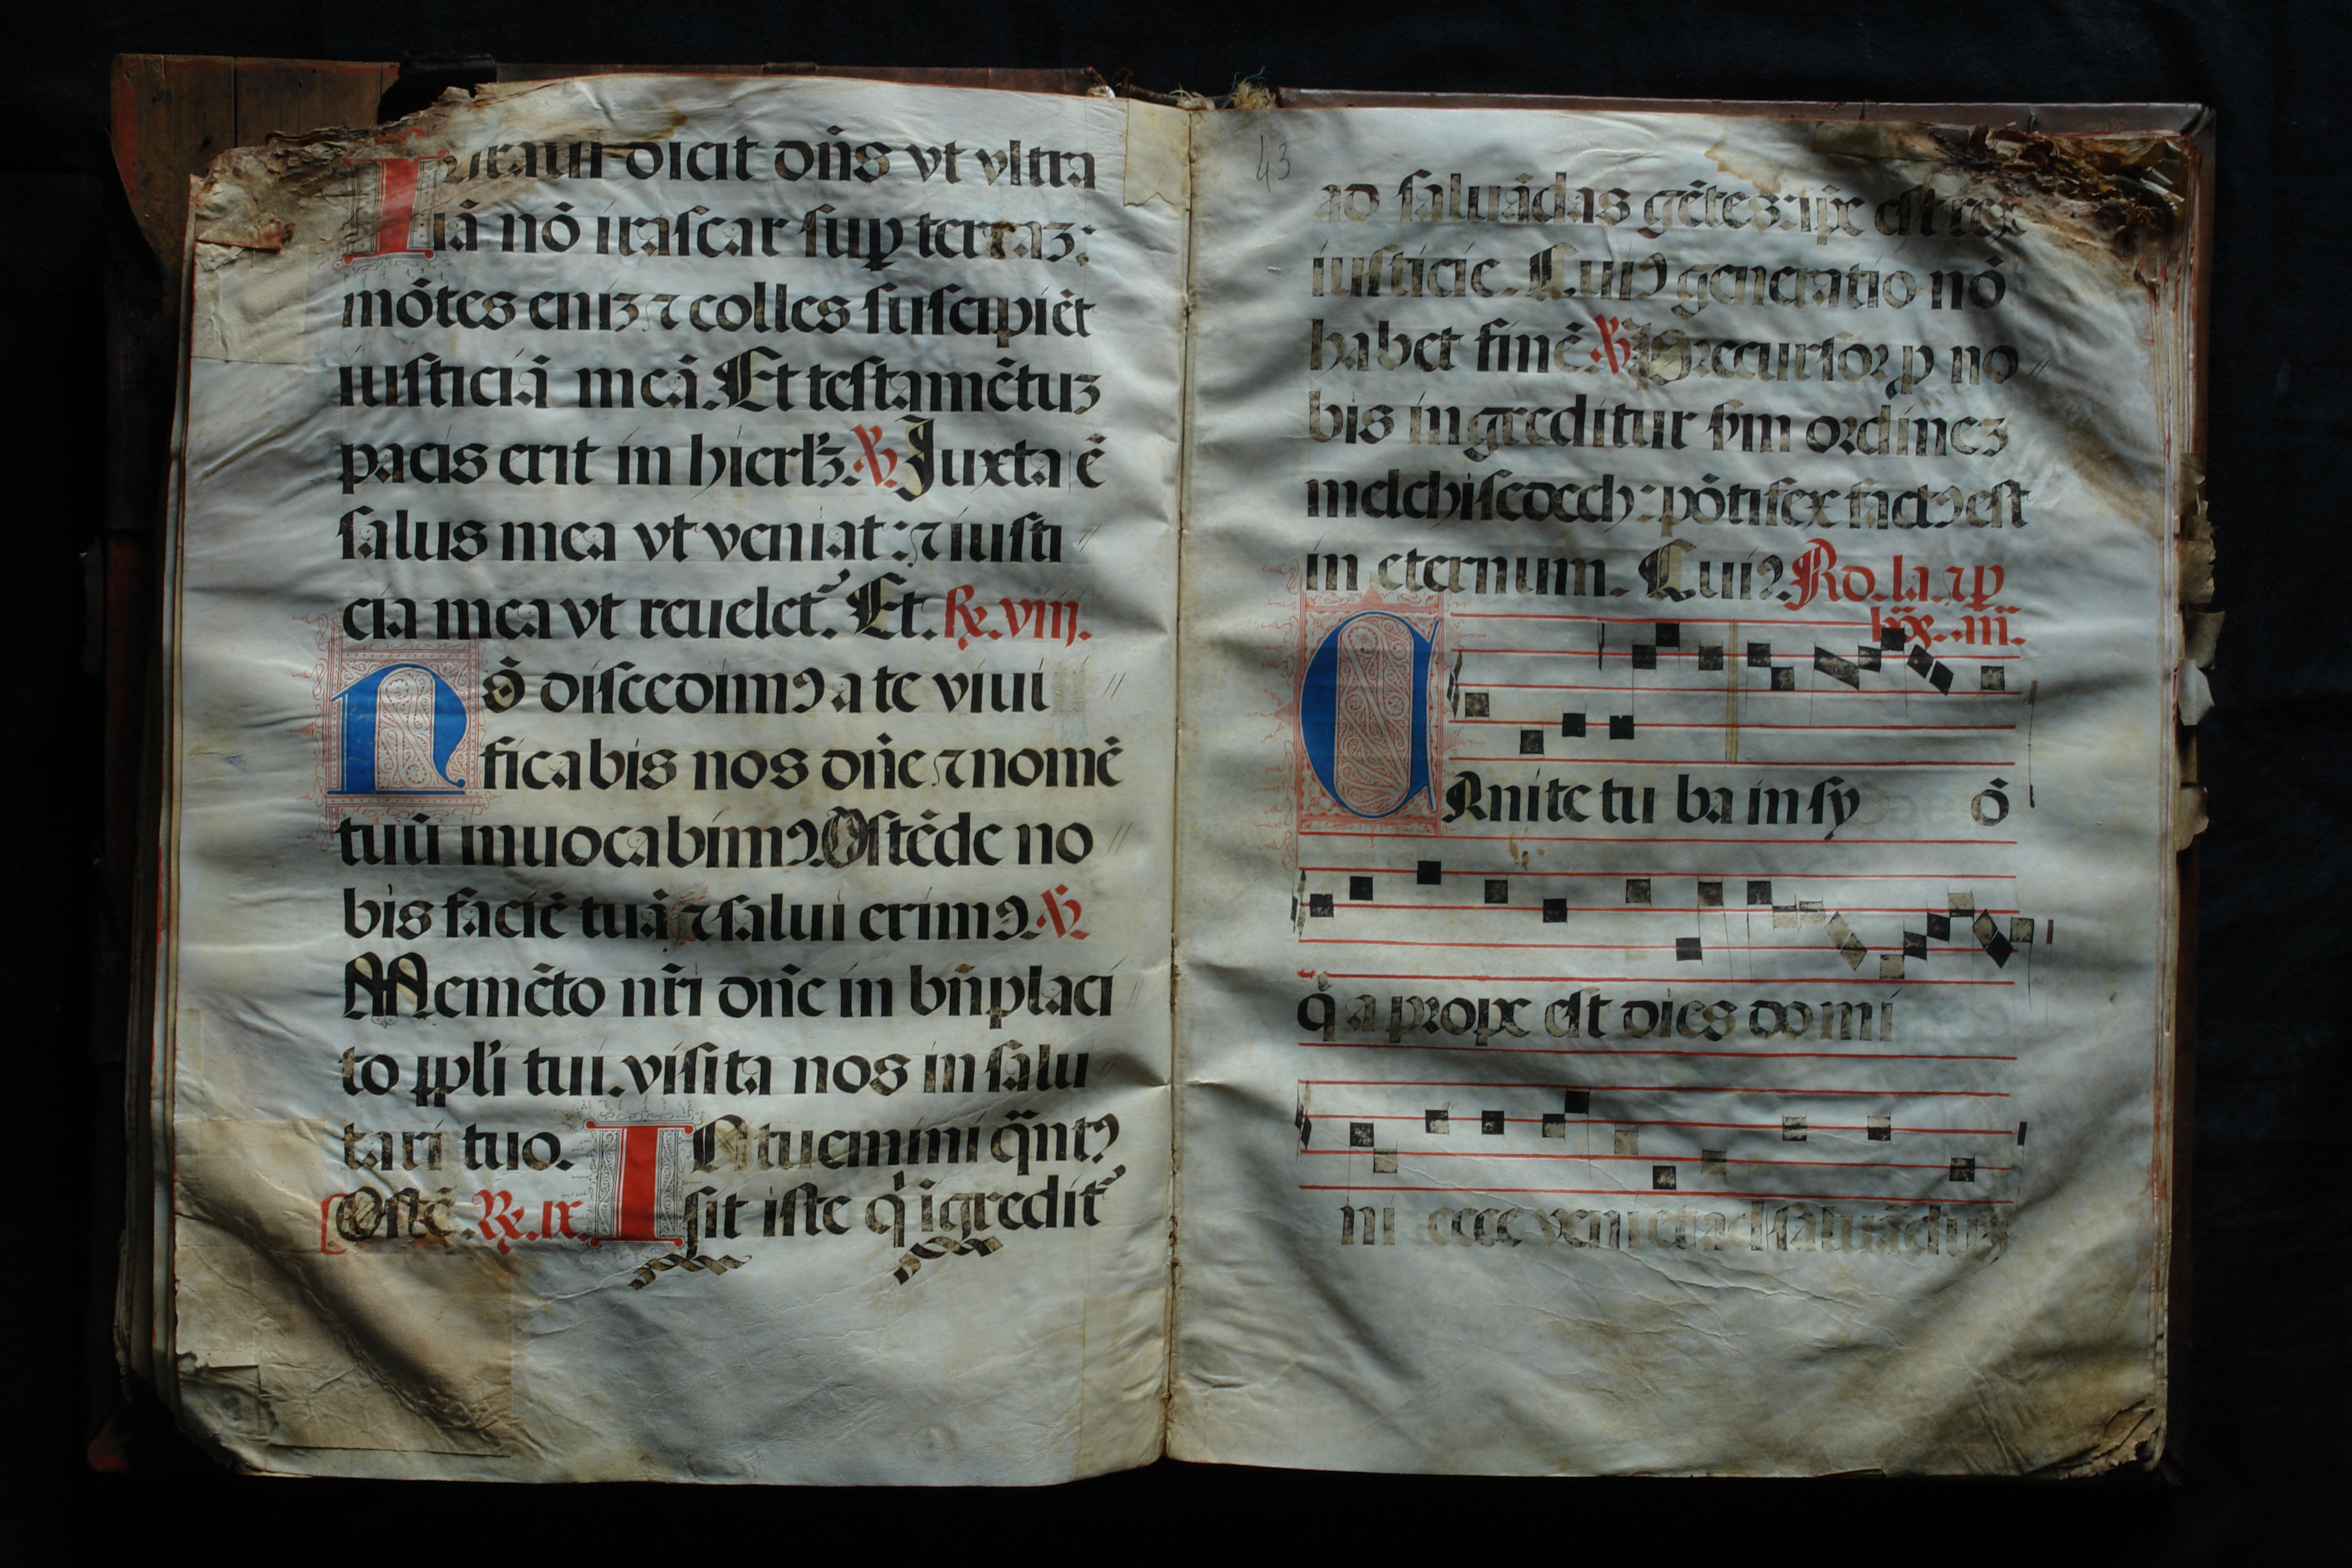 Iuraui dicit dn̄s vt vltra
iā nō irascar sup̱ terraꝫ:
mōtes eniꝫ ⁊ colles suscipiēt
iusticiā meā. Et testamētuꝫ
pacis erit in hierłꝫ. ℣. Juxta ē
salus mea vt veniat: ⁊ iusti
cia mea vt reuelet᷑. Et. ℞. viij.
Nō discedimꝰ a te viui
ficabis nos dn̄e ⁊ nomē
tuū inuocabimꝰ. Ostēde no
bis faciē tuā ⁊ salui erimꝰ. ℣.
Memēto nr̄i dn̄e in bn̄placi
to pp̄li tui. visita nos in salu
tari tuo.
Ostē. ℞. ix.
INtuemini q̄̃ntꝰ
sit iste qͥ igredit᷑
43
ad saluādas gētes: ip̄e est rex
iusticie. Cuiꝰ generatio nō
habet finē. ℣. Precursor p̱ no
bis ingreditur s̄m ordineꝫ
melchisedech: pōtifex factꝰ est
in eternum. Cuiꝰ. Ad. la. ⁊ p̱
hōr̄. añ.
CAnite tu ba in sy ō
q̇a prope est dies do mi
ni ecce veniet ad saluāduꝫ